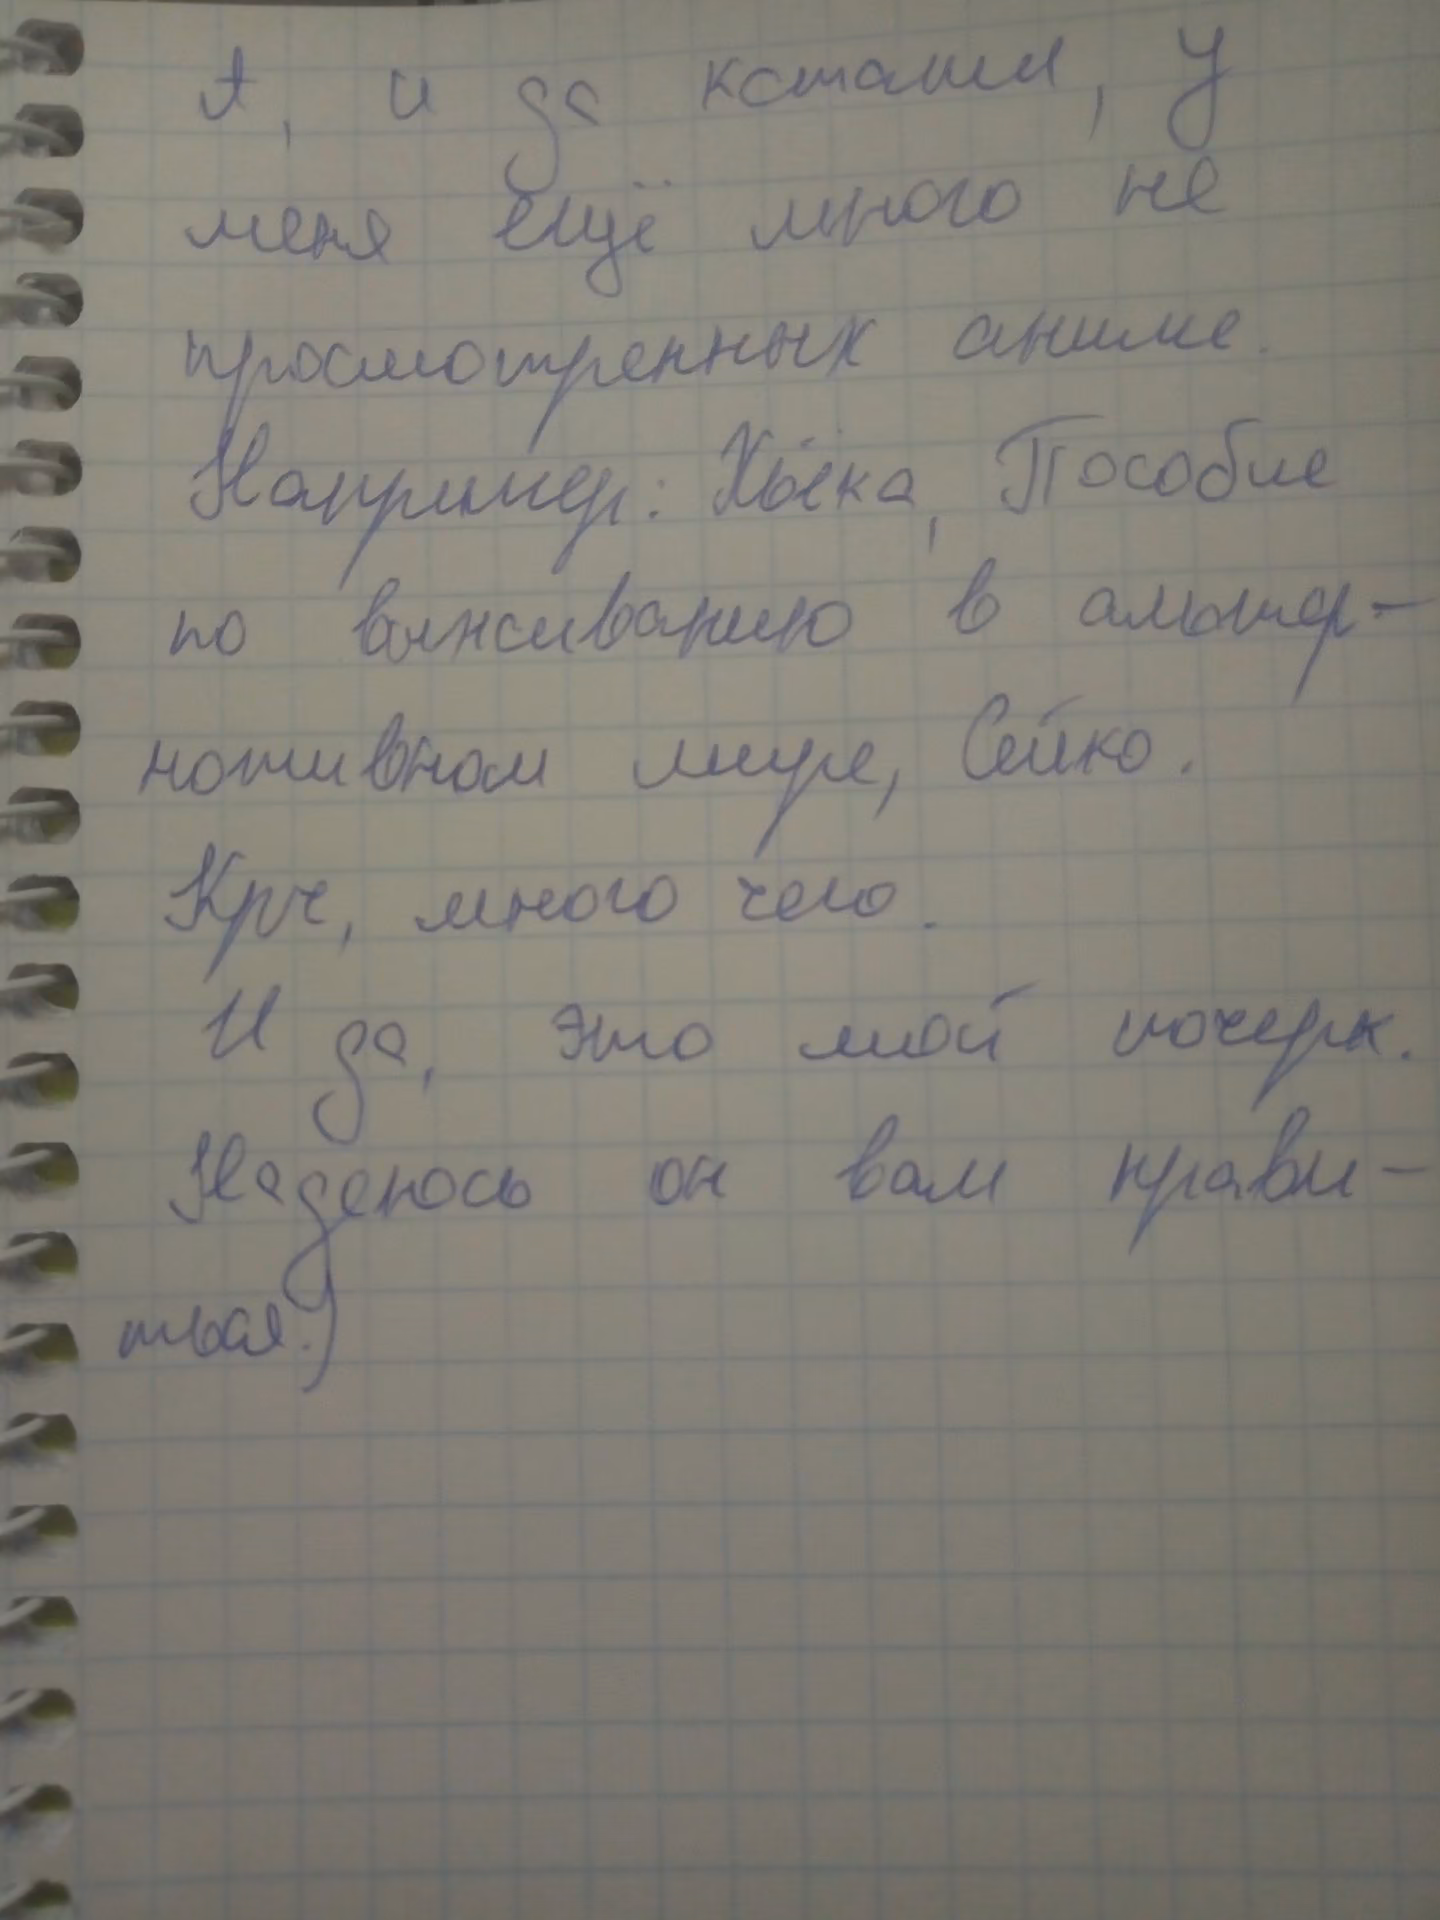 А, и да кстати, у
меня ещё много не
просмотренных аниме.
Например: Хьёка, Пособие
по выживанию в альтер-
нативном мире, Сейко.
Крч, много чего.
И да, это мой почерк.
Надеюсь он вам нрави-
ться.)